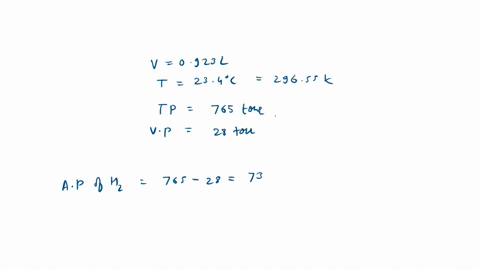 V = 0.923L
T = 23.4°C = 296.55 K
TP = 765 torr
V.P = 28 torr
A.P of H₂ = 765 - 28 = 73